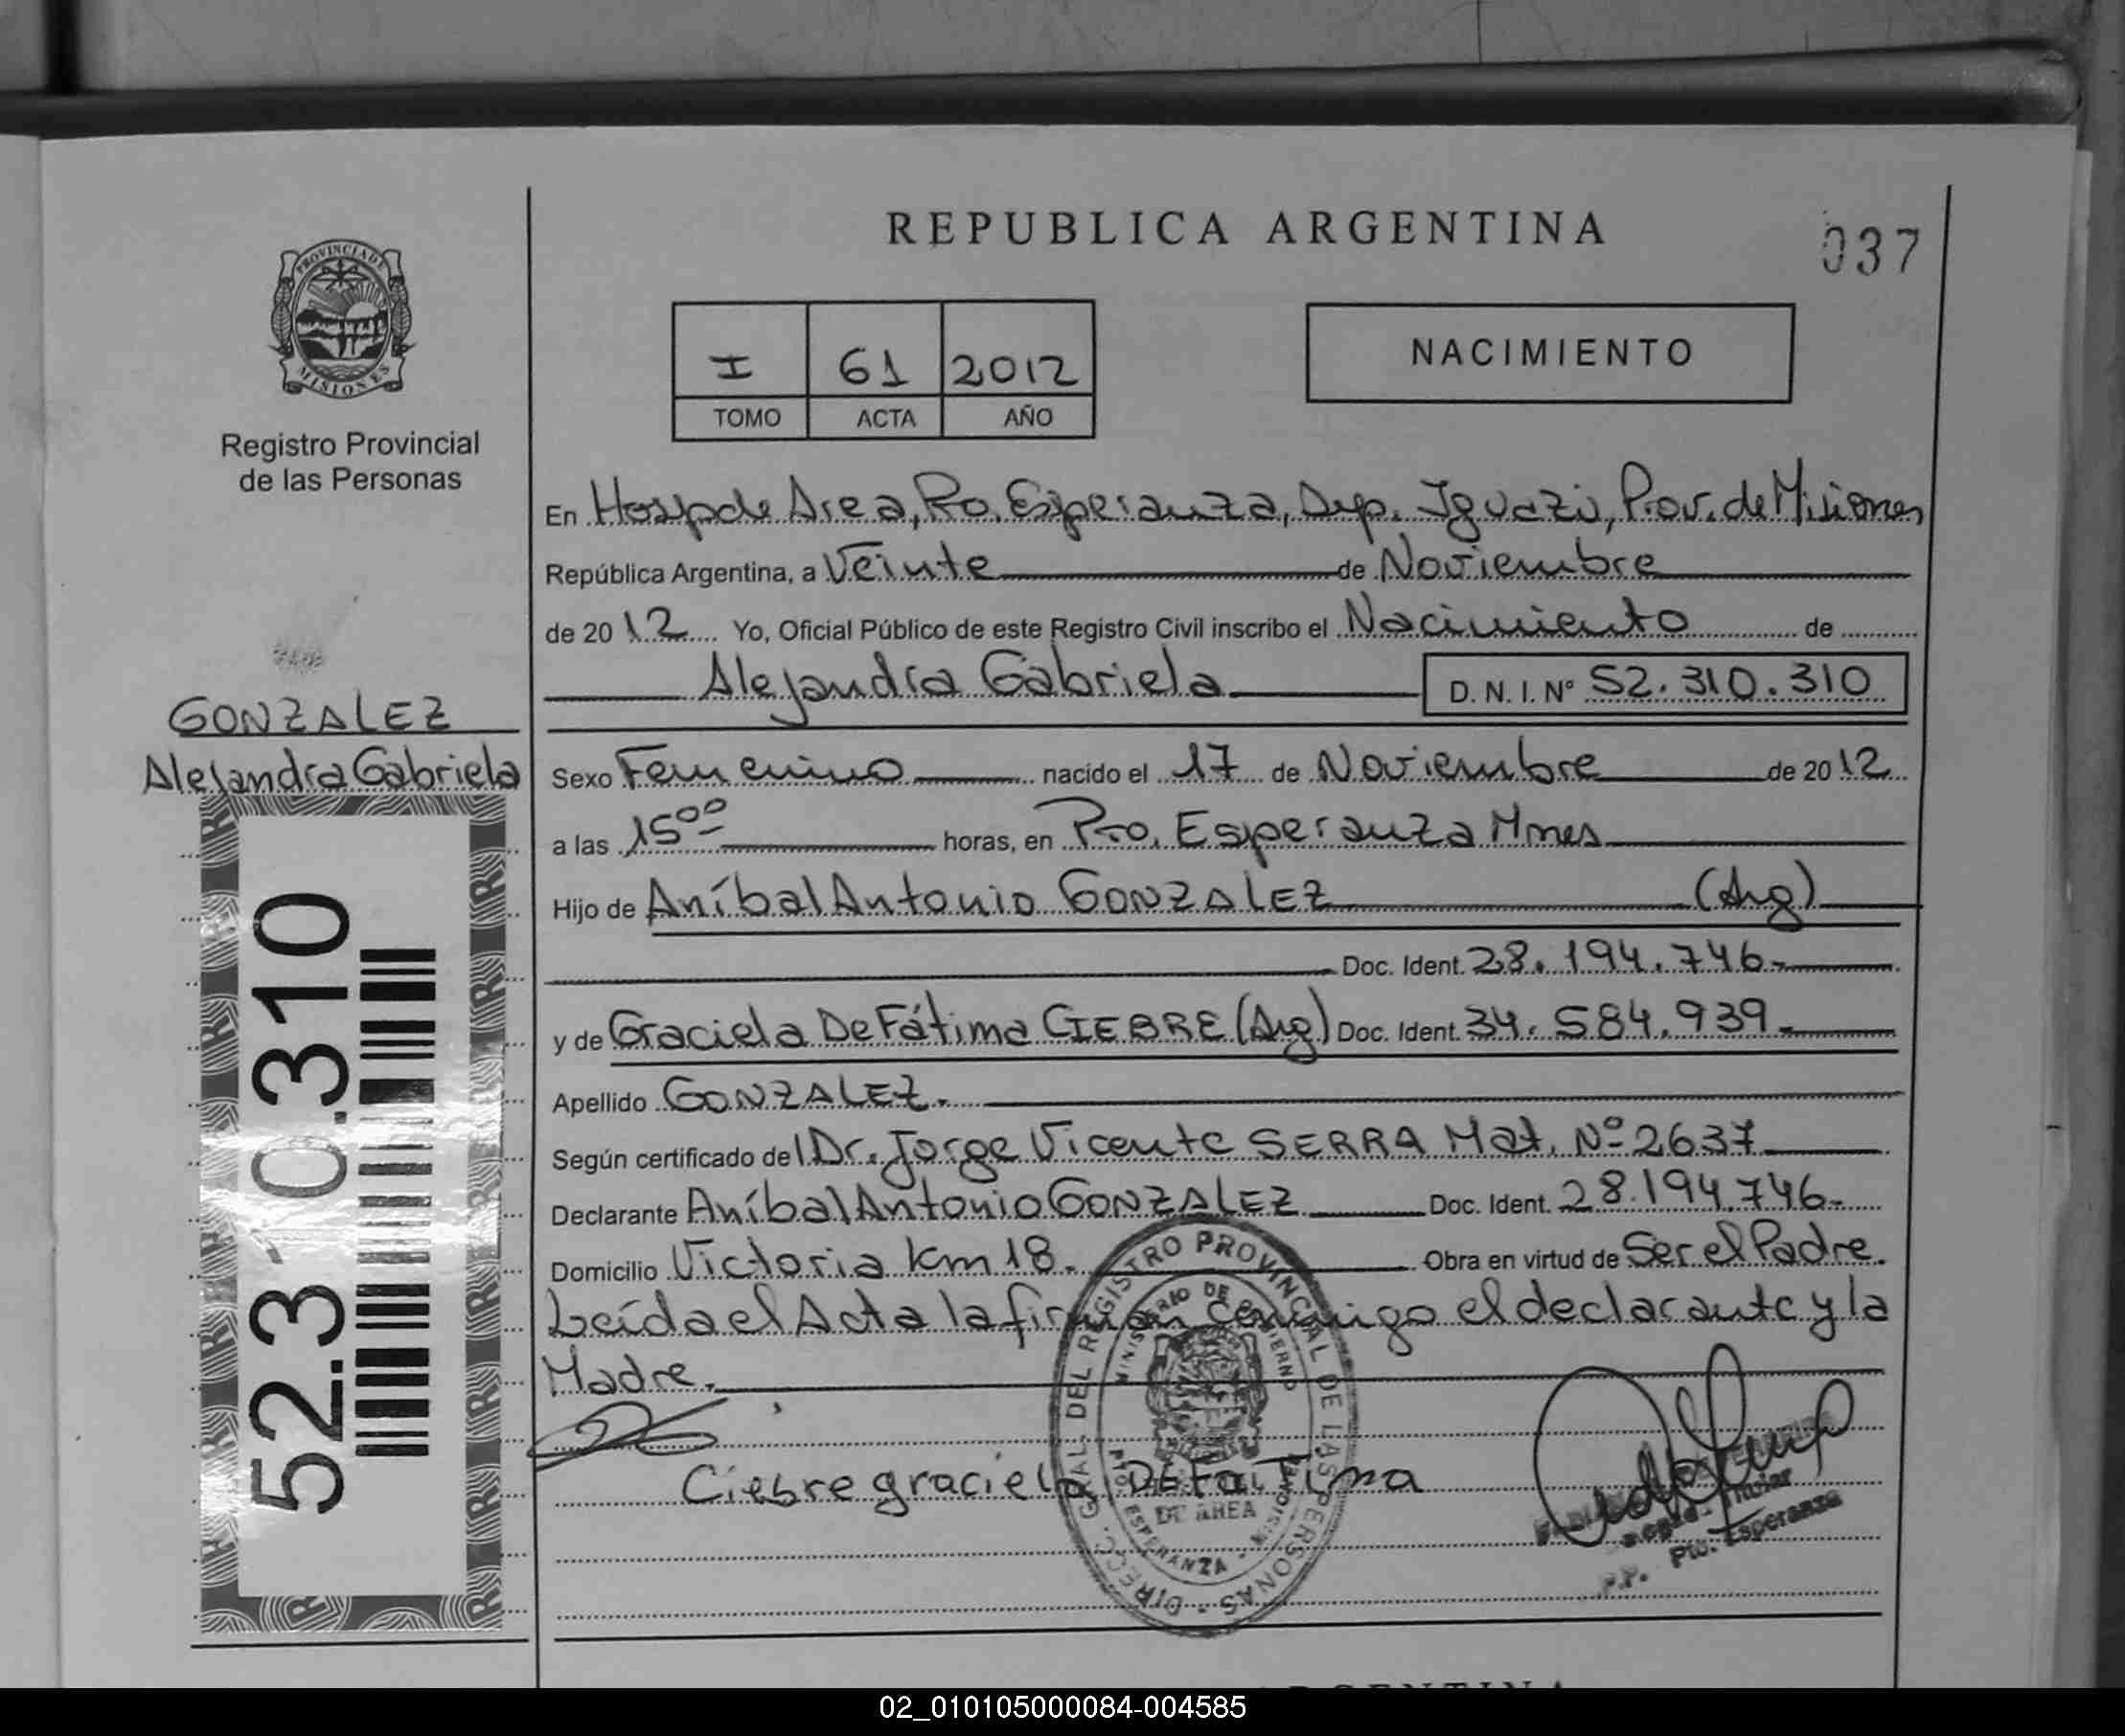 REPUBLICA ARGENTINA
037
PROVINCIA DE
MISIONES
Registro Provincial
de las Personas
I 61 2012
TOMO ACTA AÑO
NACIMIENTO
En Hosp de Area, Pto. Esperanza, Dep. Iguazú, Prov. de Misiones
República Argentina, a Veinte de Noviembre
de 2012 Yo, Oficial Público de este Registro Civil inscribo el Nacimiento de
Alejandra Gabriela D.N.I. Nº 52.310.310
GONZALEZ
Alejandra Gabriela
52.310.310
Sexo Femenino nacido el 17 de Noviembre de 2012
a las 15⁰⁰ horas, en Pto. Esperanza Mnes
Hijo de Aníbal Antonio GONZALEZ (Arg)
Doc. Ident. 28.194.746-
y de Graciela De Fátima CIEBRE (Arg) Doc. Ident. 34.584.939-
Apellido GONZALEZ.
Según certificado del Dr. Jorge Vicente SERRA Mat. Nº 2637
Declarante Aníbal Antonio GONZALEZ Doc. Ident. 28.194.746-
Domicilio Victoria Km 18. Obra en virtud de Ser el Padre.
Leída el Acta la firman conmigo el declarante y la
Madre.
Ciebre graciela DE Fa Tima
DIRECC. GRAL. DEL REGISTRO PROVINCIAL DE LAS PERSONAS
MINISTERIO DE GOBIERNO
DE AREA
PTO. ESPERANZA - MISIONES
Titular
Pto. Esperanza
02_010105000084-004585